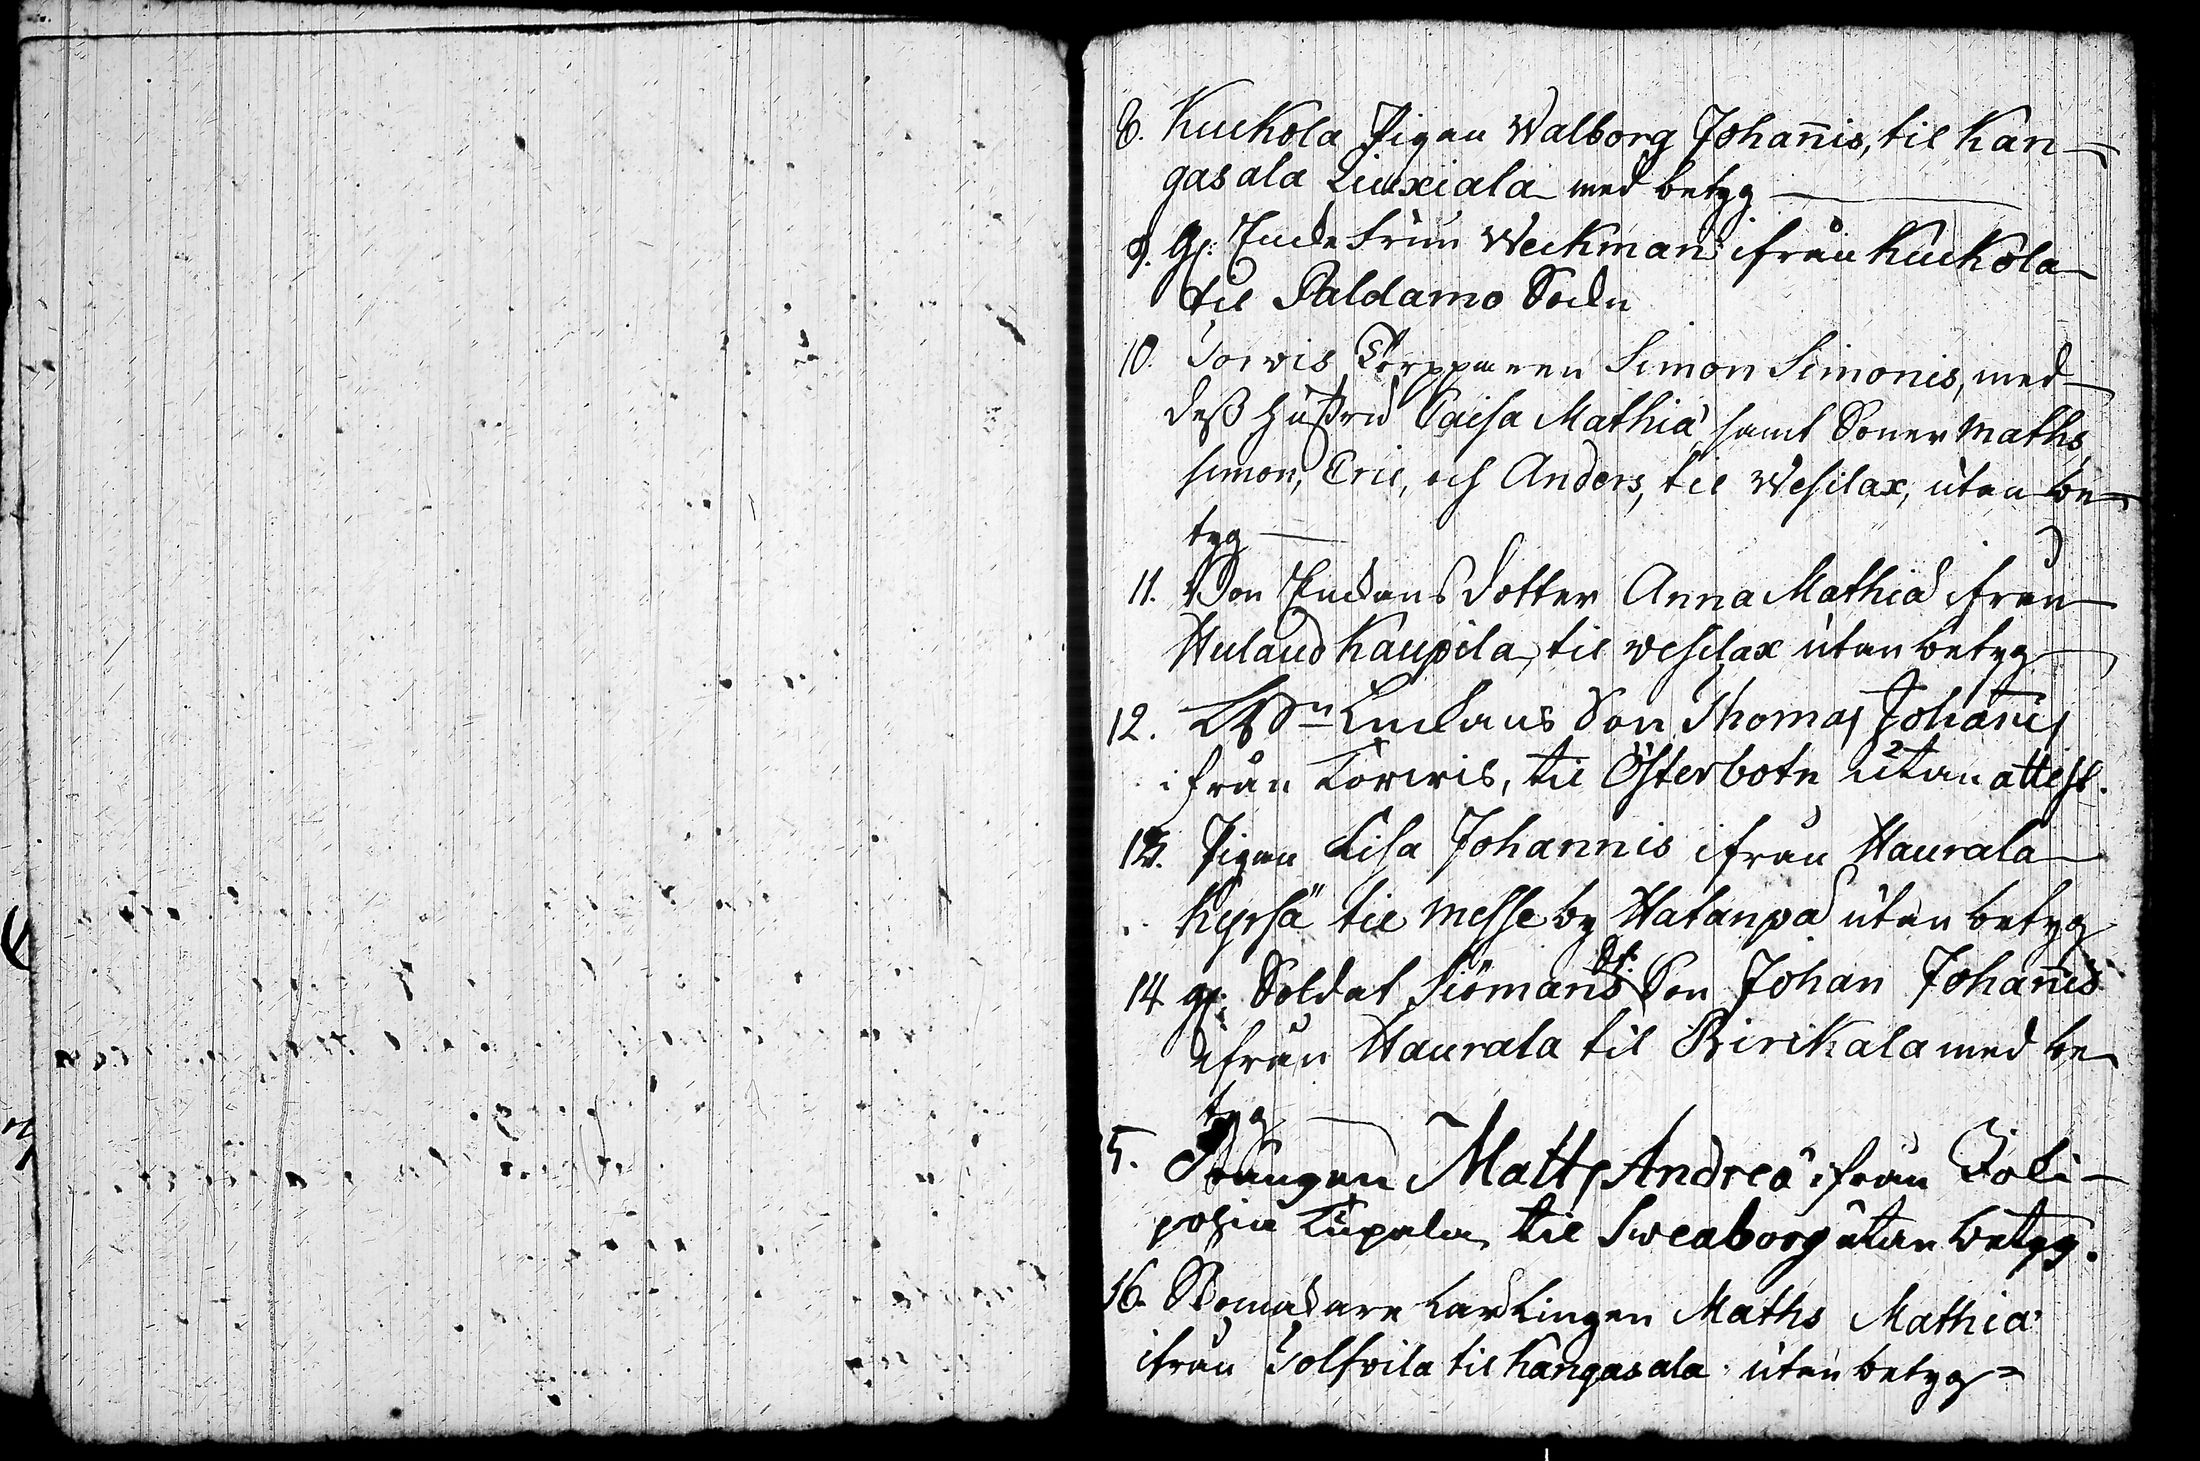 8. Kuckola Pigan Walborg Johan̄is, til Kan-
gasala Liuxiala med betyg
9. gl: Enck Frun Weckman ifrån Kuckola
til Paldamo Sockn
10. Torpparen Simon Simonis, med
deß hustru Caisa Mathiæ samt Söner Maths,
Simon, Eric, och Anders, til Wesilax, utan be-
tyg
11. Enckans dotter Anna Mathiæ ifrån
Kaupila, til Wesilax utan betyg
12. Enckans Son Thomas Johan̄is
ifrån til Österbotn utan attest.
13. Pigan Lisa Johannis ifrån Haurala
Kyrsä til Messeby Hatanpä utan betyg
14 gl: Soldat Siömans Son Johan Johan̄is
ifrån Haurala til Birikala med be
tyg
5. Drängen Matts Andreæ ifrån Toli-
pohia til Sweaborg utan betyg.
16. Skomakare Lärlingen Maths Mathiæ
ifrån til Kangasala utan betyg